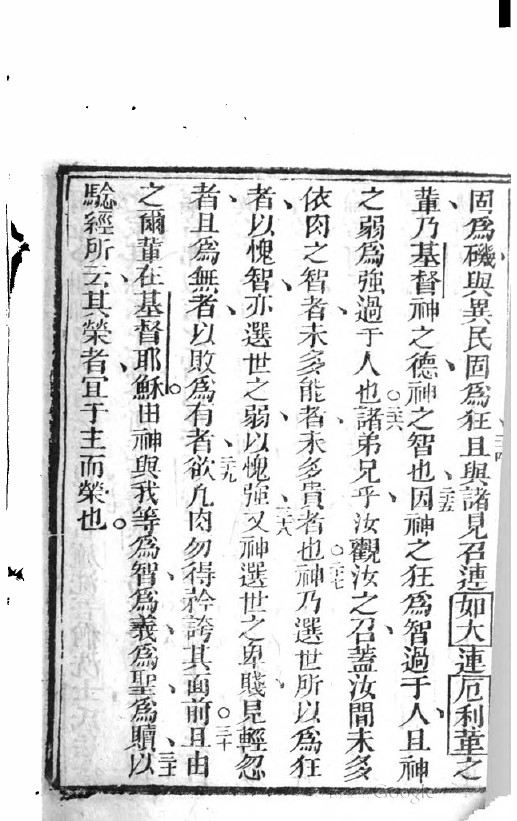 固爲磯與異民固爲狂且與諸見召連如大連厄利革之
輩乃基督神之德神之智也因神之狂爲智過于人且神
之弱爲強過于人也○諸弟兄乎汝觀汝之召蓋汝間未多
依肉之智者未多能者未多貴者也○神乃選世所以爲狂
者以愧智亦選世之弱以愧強又神選世之卑賤見輕忽
者且爲無者以敗爲有者欲凢肉勿得矜誇其面前○且由
之爾輩在基督耶穌由神與我等爲智爲義爲聖爲贖以
驗經所云其榮者宜于主而榮也